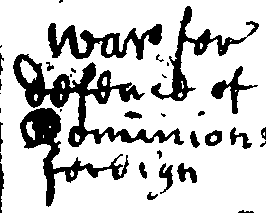 warr for
defence of
Dominions
foreign